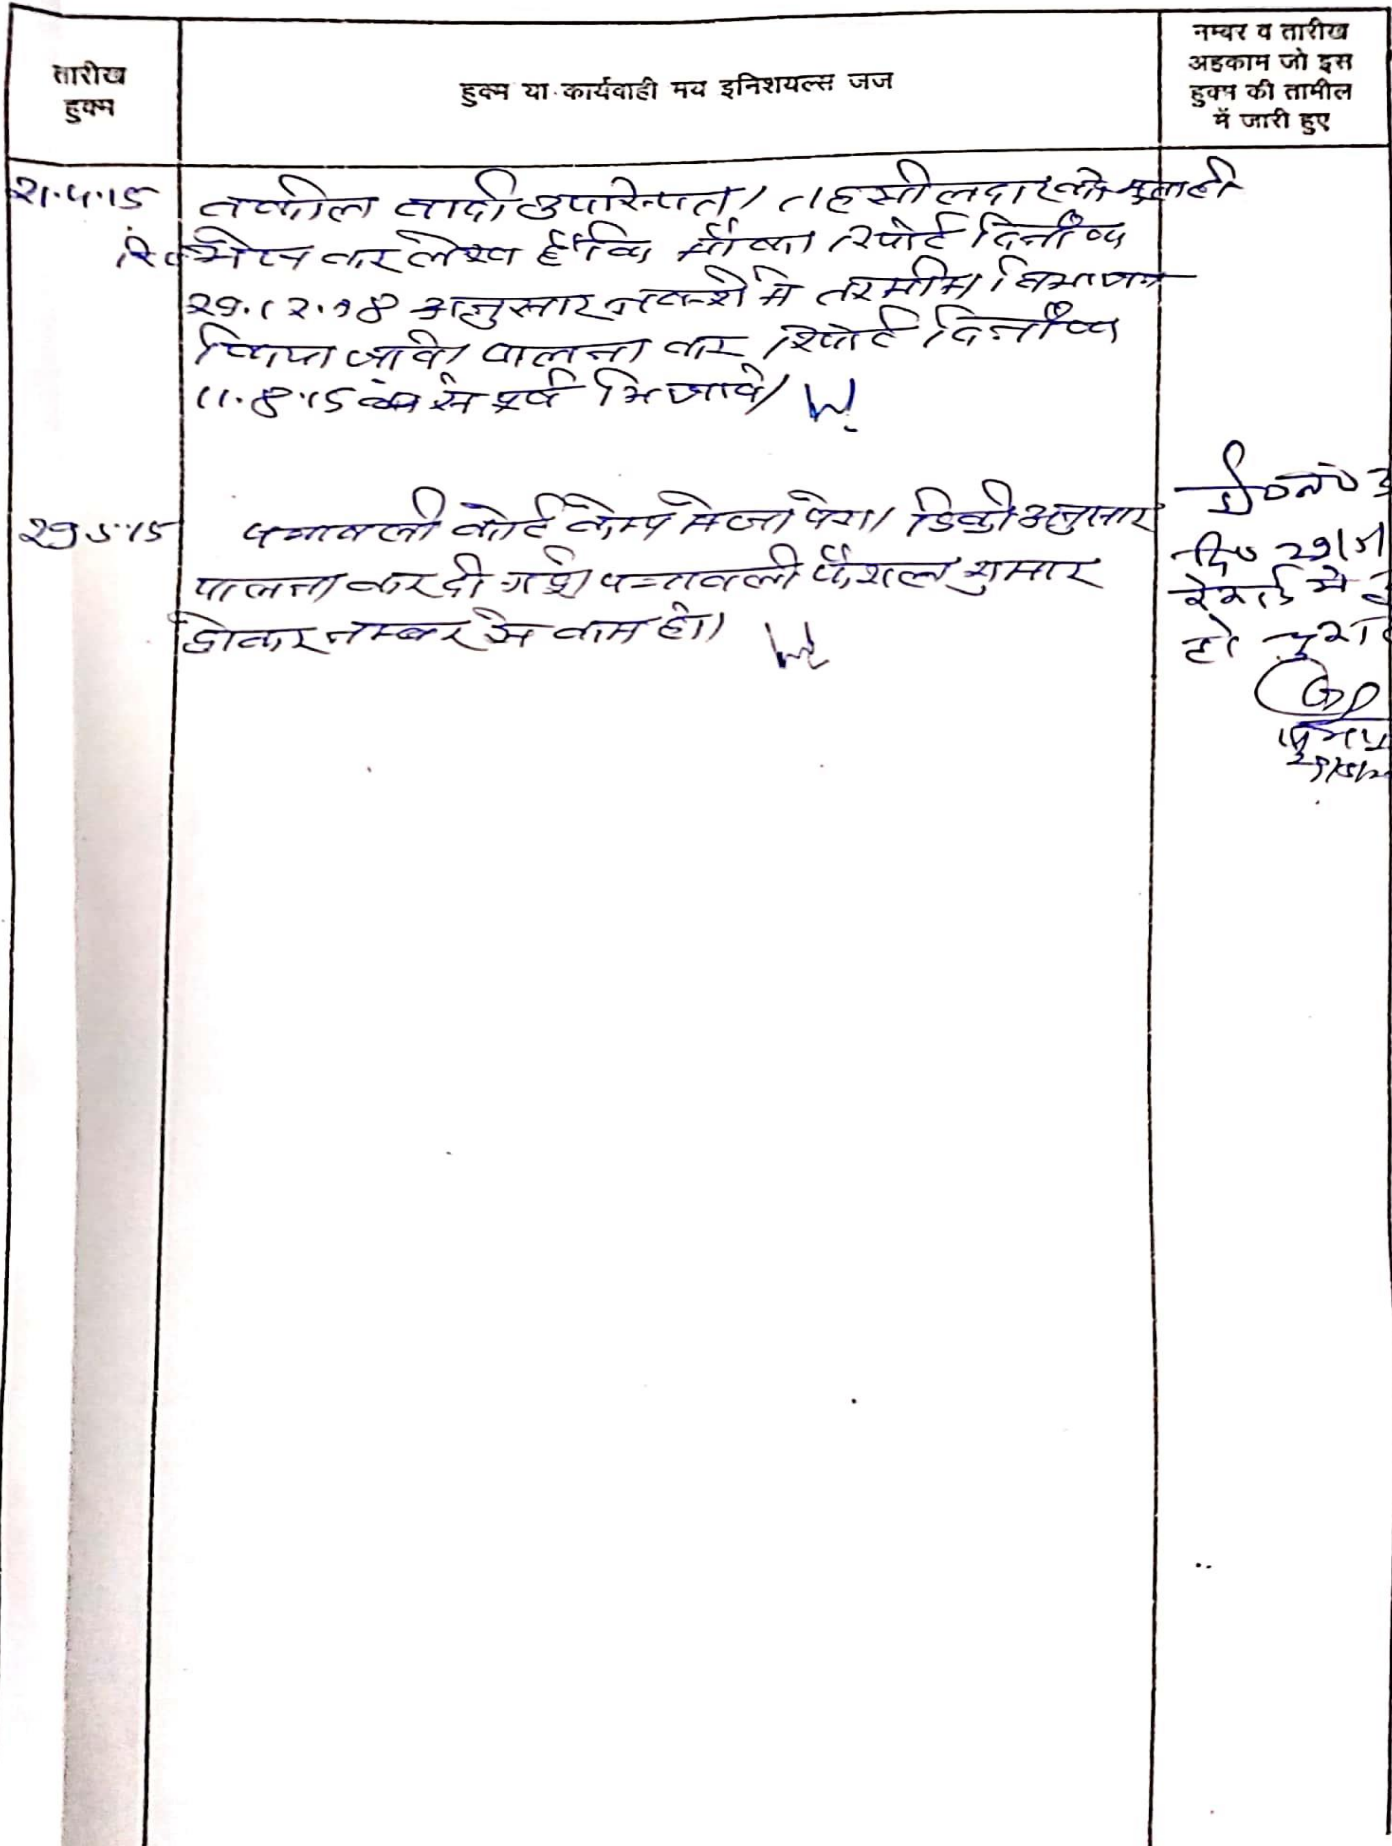 तारीख
हुक्म
हुक्म या कार्यवाही मय इनिशयल्स जज
नम्बर व तारीख
अहकाम जो इस
हुक्म की तामील
में जारी हुए
21.4.15 वकील वादी उपस्थित। तहसीलदार को
कर लेख है कि मौका रिपोर्ट दिनाँक
29.12.08 अनुसार नक्शे मे तरमीम विभाजन
किया जावे। पालना कर रिपोर्ट दिनाँक
11.8.15 से पूर्व भिजावे।
29.5.15 पत्रावली कोर्ट केम्प मे पेश। डिक्री अनुसार
पालना कर दी गई। पत्रावली फैशल शुमार
होकर नम्बर से कम हो।
दि० 29/5/
मे
हो